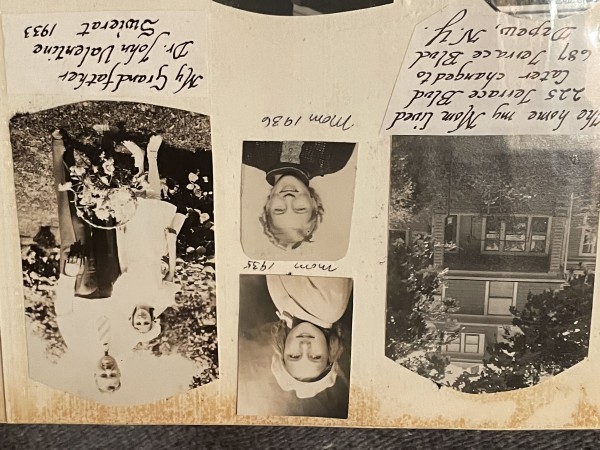 The home my Mom lived
225 Terrace Blvd
later changed to
687 Terrace Blvd.
Depew, N.Y.
Mom 1935
Mom 1936
My Grandfather
Dr. John Valentine
Swierat 1933